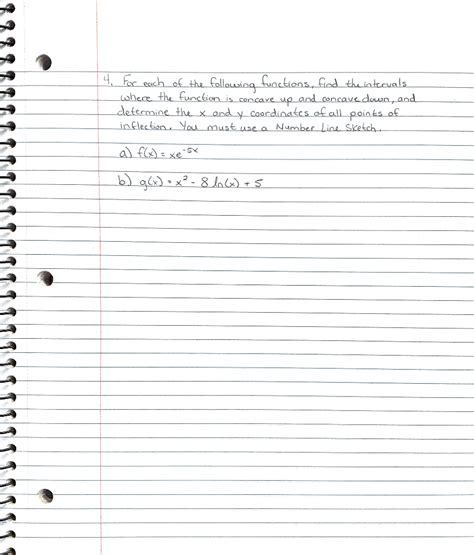 4. For each of the following functions, find the intervals
where the function is concave up and concave down, and
determine the x and y coordinates of all points of
inflection. You must use a Number Line Sketch.
a) f(x) = xe⁻⁵ˣ
b) g(x) = x² - 8 ln(x) + 5